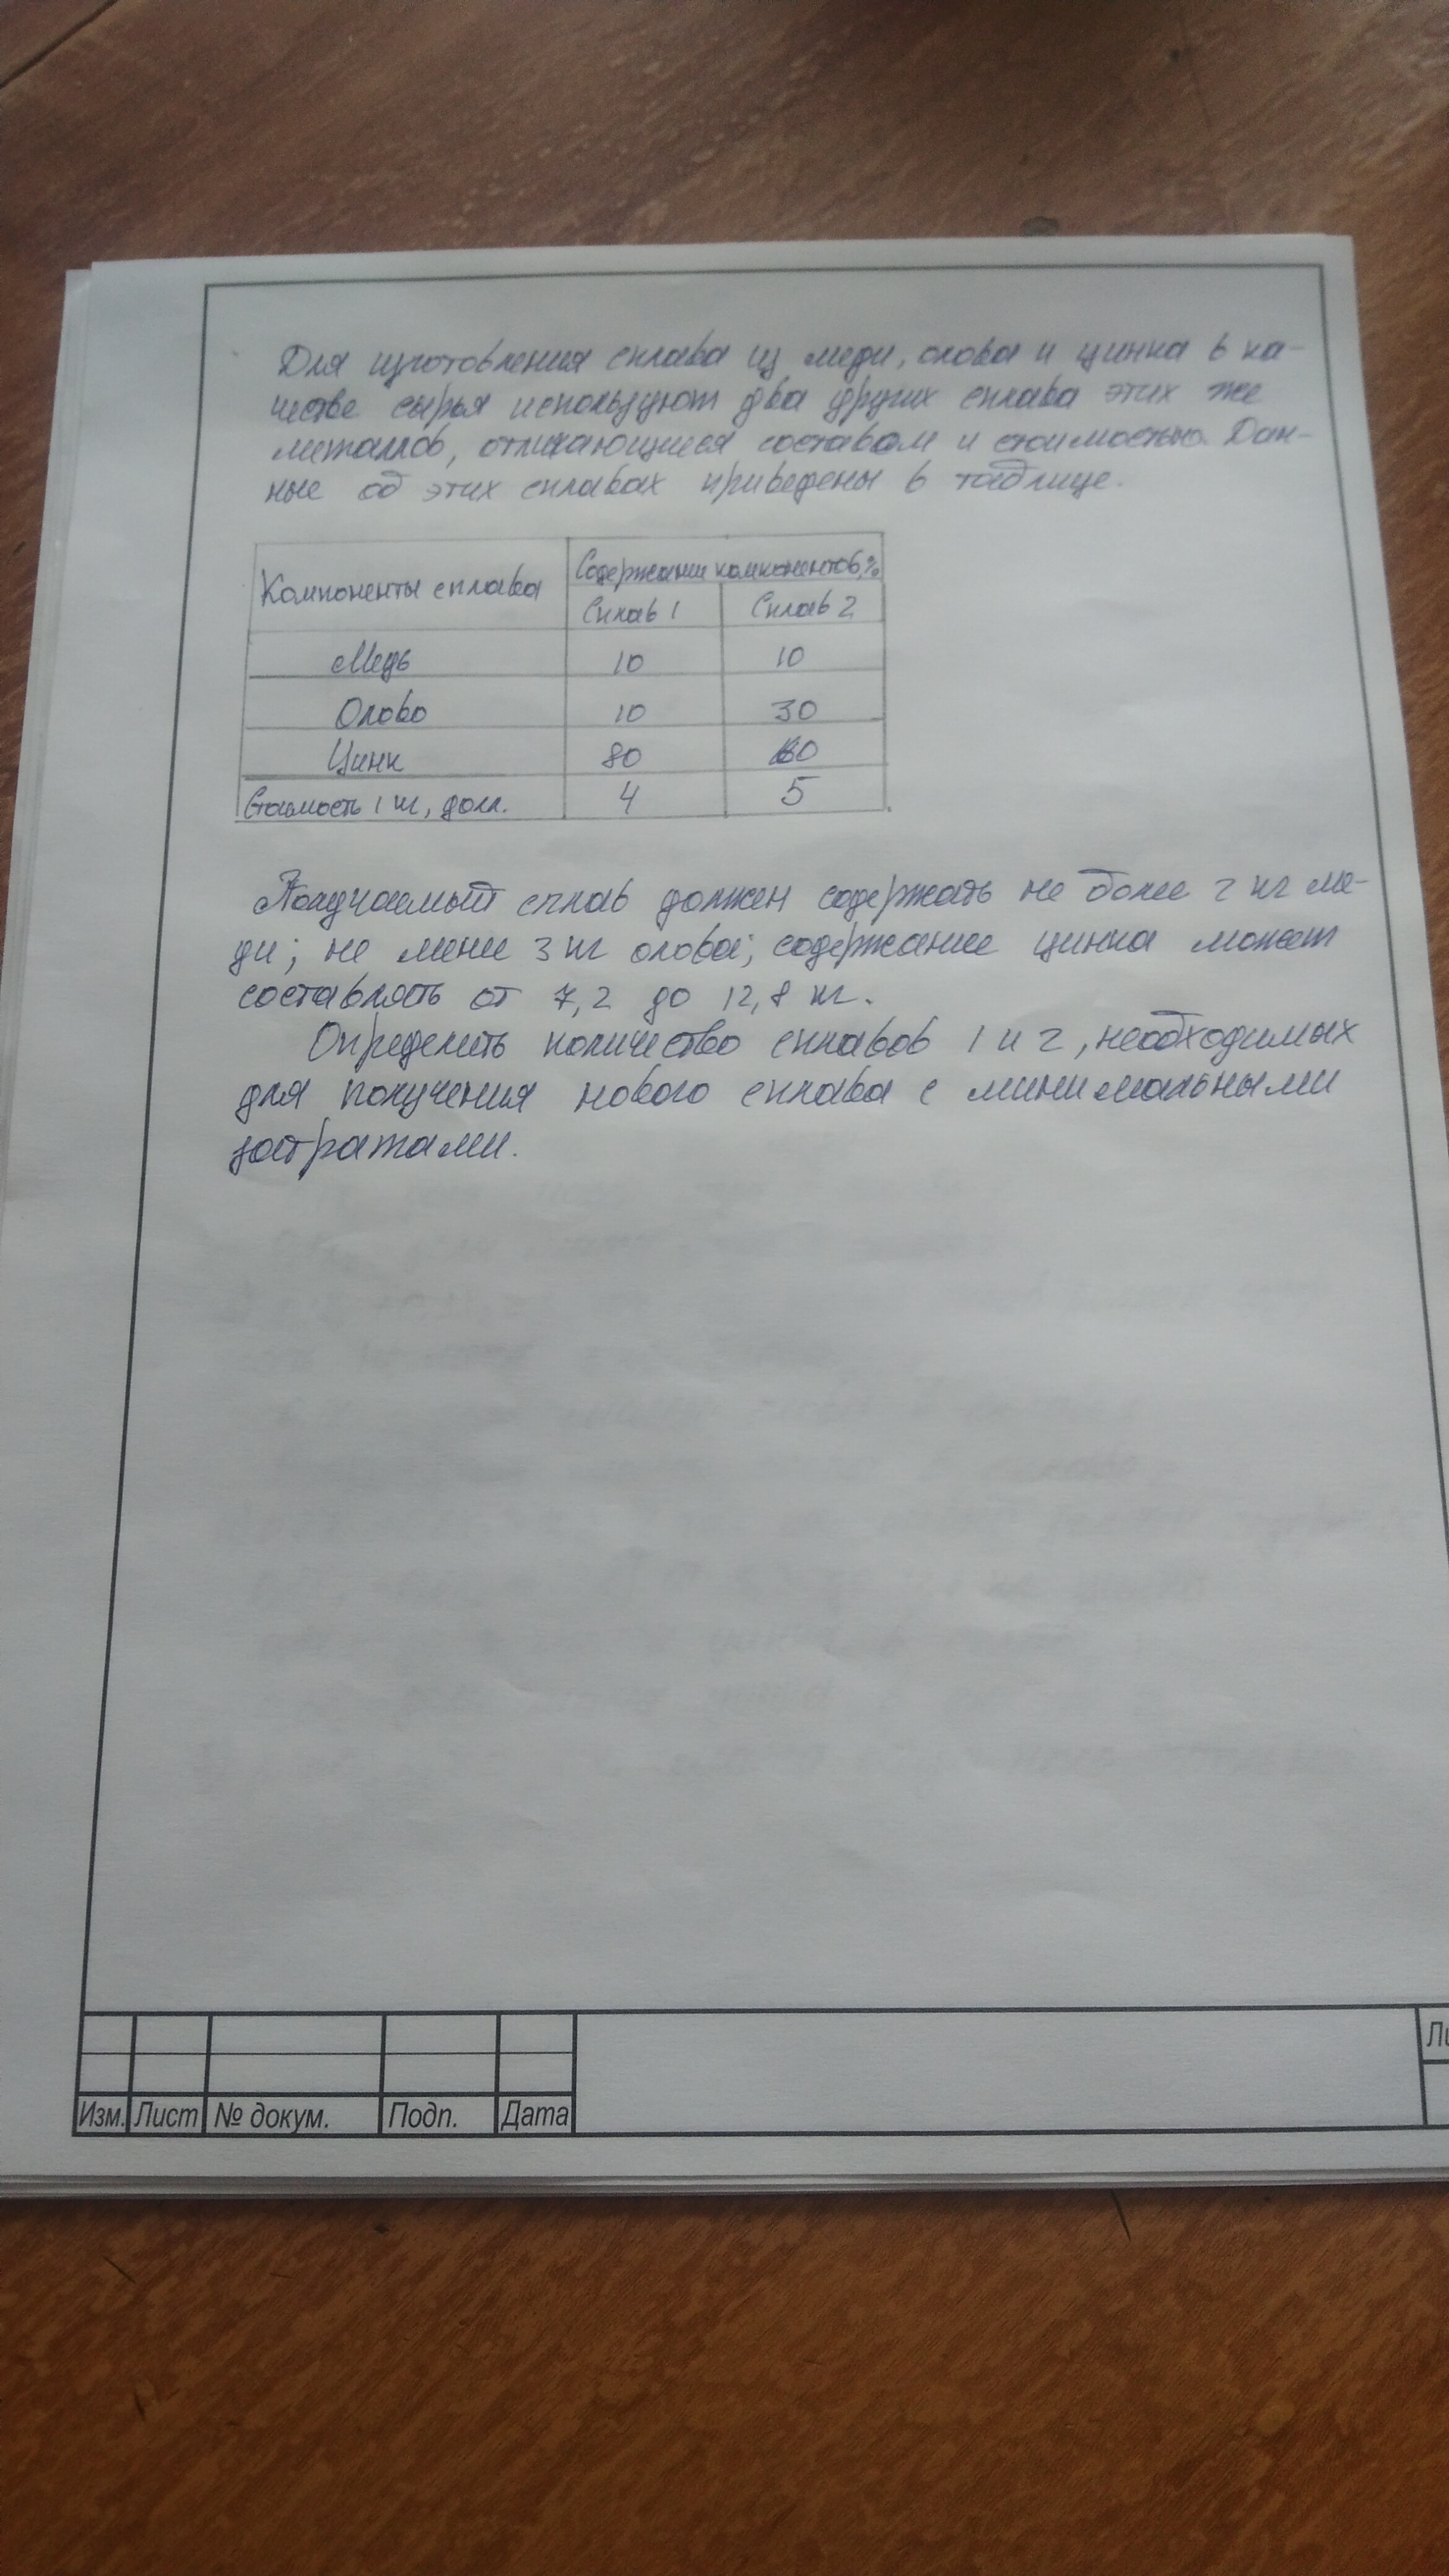 Для изготовления сплава из меди, олова и цинка в ка-
честве сырья используют два других сплава этих же
металлов, отличающиеся составом и стоимостью. Дан-
ные об этих сплавах приведены в таблице.
Компоненты сплава
Содержание компонентов, %
Сплав 1 Сплав 2
Медь 10 10
Олово 10 30
Цинк 80 60
Стоимость 1 кг, долл. 4 5
Получаемый сплав должен содержать не более 2 кг ме-
ди; не менее 3 кг олова; содержание цинка может
составлять от 7,2 до 12,8 кг.
Определить количество сплавов 1 и 2, необходимых
для получения нового сплава с минимальными
затратами.
Изм. Лист № докум. Подп. Дата